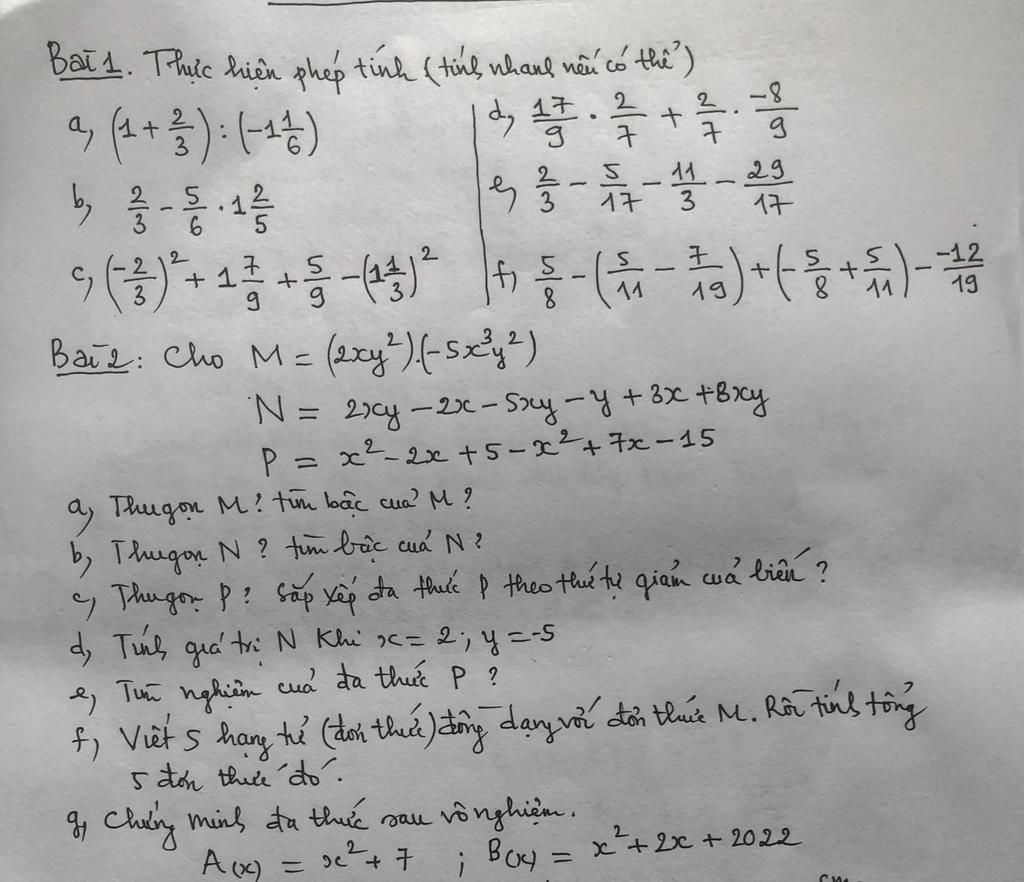 Bài 1. Thực hiện phép tính (tính nhanh nếu có thể)
a, (1 + 2/3) : (-1 1/6)
b, 2/3 - 5/6 . 1 2/5
c, (-2/3)² + 1 7/9 + 5/9 - (1 1/3)²
d, 17/9 . 2/7 + 2/7 . -8/9
e, 2/3 - 5/17 - 11/3 - 29/17
f, 5/8 - (5/11 - 7/19) + (-5/8 + 5/11) - -12/19
Bài 2: Cho M = (2xy²).(-5x³y²)
N = 2xy - 2x - 5xy - y + 3x + 8xy
P = x² - 2x + 5 - x² + 7x - 15
a, Thu gọn M? tìm bậc của M?
b, Thu gọn N? tìm bậc của N?
c, Thu gọn P? Sắp xếp đa thức P theo thứ tự giảm của biến?
d, Tính giá trị N khi x = 2; y = -5
e, Tìm nghiệm của đa thức P?
f, Viết 5 hạng tử (đơn thức) đồng dạng với đơn thức M. Rồi tính tổng
5 đơn thức đó.
g, Chứng minh đa thức sau vô nghiệm.
A(x) = x² + 7 ; B(x) = x² + 2x + 2022